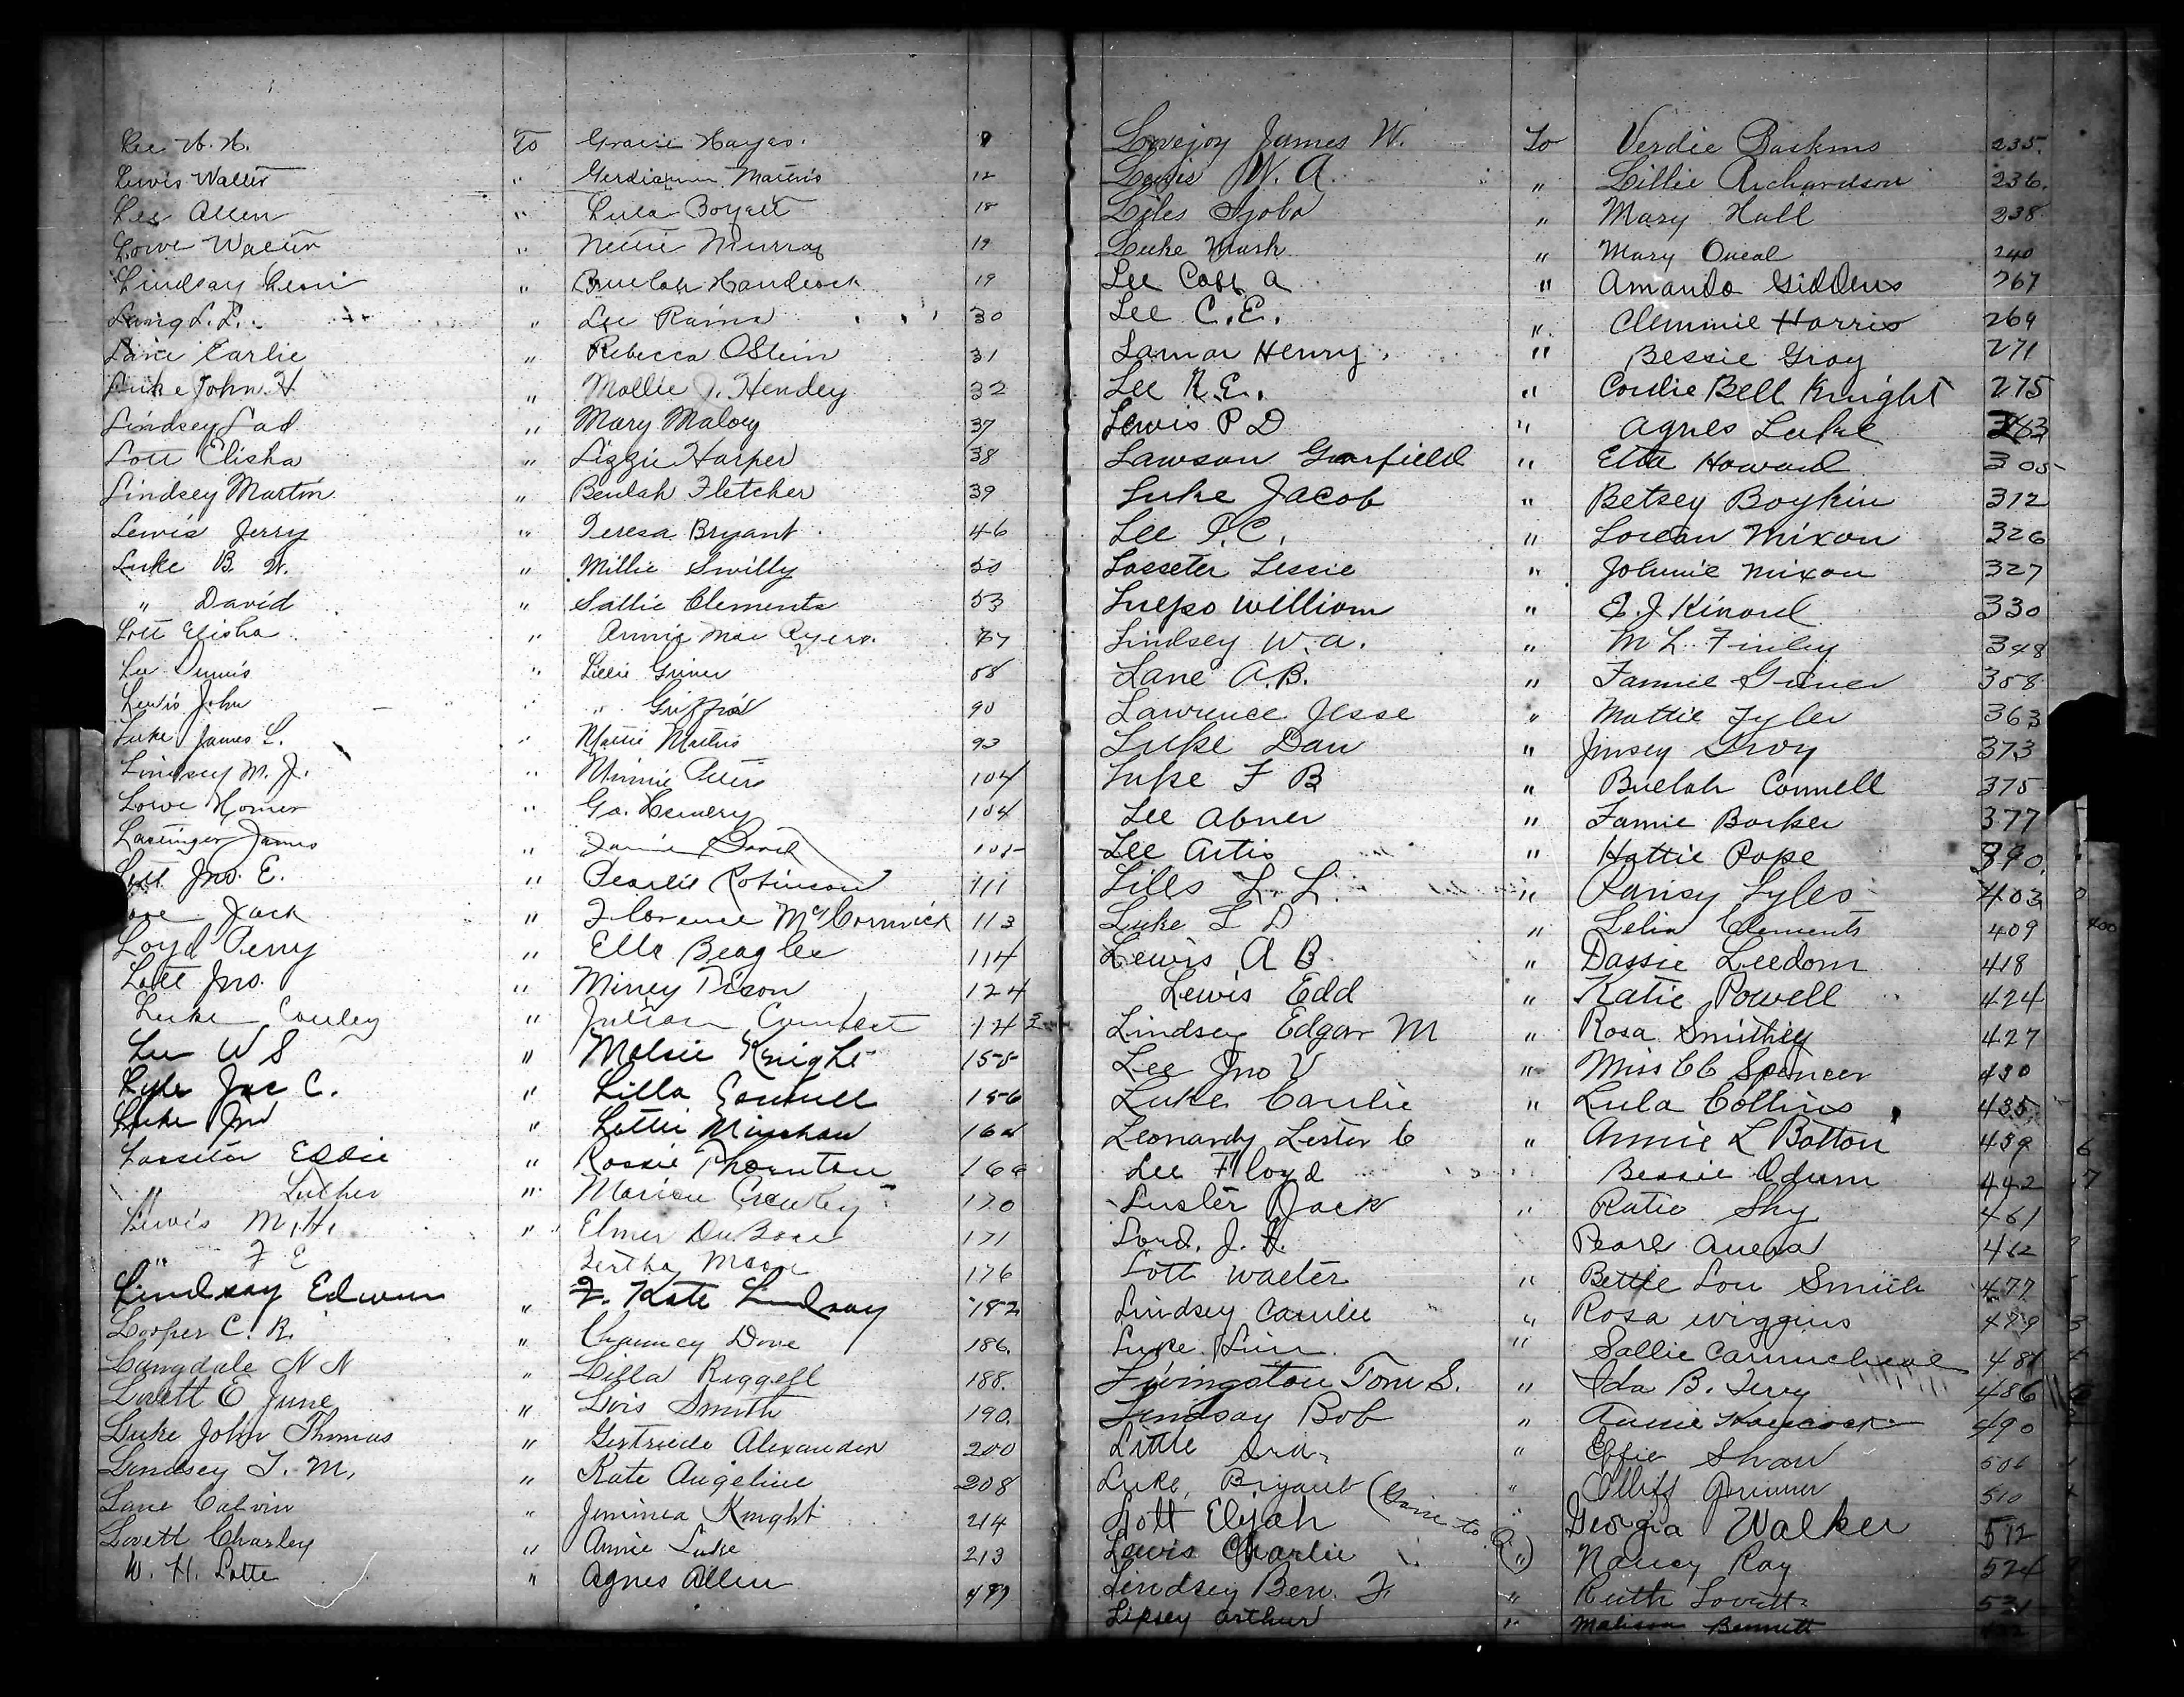 Lee W. H. To Gracie Hayes. 9
Lewis Walter " Mathis 12
Lee Allen " Lula Boyett 18
Lowe Walter " Nettie Murray 19
Lindsay Leon " Beulah Handcock 19
Lang L. L. " Lee Rains 30
Lane Earlie " Rebecca OStein 31
Luke John H " Mollie J. Hendey 32
Lindsey Lad " Mary Maloy 37
Lott Elisha " Lizzie Harper 38
Lindsey Martin " Beulah Fletcher 39
Lewis Jerry " Teresa Bryant 46
Luke B. W. " Millie Swilly 50
" David " Sallie Clements 53
Lott Elisha " Annie Mae Ryers.
Lee Dennis " Lillie Griner 88
Lewis John " " Griffin 90
Luke James L. " Mattie Mathis 93
Lindsey M. J. " Minnie 104
Lowe Homer " Ga. 104
Lastinger James " 105
Lott Jno. E. " Pearlie Robinson 111
Jack " Florence McCormick 113
Loyd Perry " Ella Beaglee 114
Lott Jno. " Mincy Dixon 124
Luke Conley " 142
Lee W S " Melsie Knight 155
Luke Jac C. " Lilla 156
Luke Jno " Lottie Minshaw 164
Lasseter Eddie " Rossie Thornton 166
" Luther " Marion Crawley 170
Lewis M. H. " Elmer DuBose 171
" F E Bertha Moore 176
Lindsay Edwin " F. Kate Lindsay 182
Looper C. R. " Chauncy Dove 186.
Langdale N N " Lilla Riggell 188.
Lovett E June " Lois Smith 190.
Luke John Thomas " Gertrude Alexander 200
Lindsey T. M. " Kate Angeline 208
Lane Calvin " Jemimea Knight 214
Lovett Charley " Annie Luke 213
W. H. Lotte " Agnes Allen
Lovejoy James W. To Verdie Baskins 235.
Lewis W. A. " Lillie Richardson 236.
Liles " Mary Hall 238
Luke Mark " Mary Oneal 240
Lee " Amanda Giddens 267
Lee C. E. " Clemmie Harris 269
Lamar Henry " Bessie Gray 271
Lee R. E. " Cordie Bell Knight 275
Lewis P D " Agnes Luke 283
Lawson Garfield " Etta Howard 305
Luke Jacob " Betsey Boykin 312
Lee P. C. " Lorean Mixon 326
Lasseter Lessie " Johnnie Mixon 327
William " E. J. Kinard 330
Lindsey W. A. " M L Finley 348
Lane A. B. " Fannie Griner 358
Lawrence Jesse " Mattie Tyler 363
Luke Dan " Jinsey 373
Luke F B " Buelah Connell 375
Lee Abner " Fannie Barker 377
Lee Artis " Hattie Pope 390.
Lills L. L. " Pansy Lyles 403
Luke L D " Lelia Clements 409 400
Lewis A B " Dassie Leedom 418
Lewis Edd " Katie Powell 424
Lindsey Edgar M " Rosa Smithey 427
Lee Jno V " Miss CC Spencer 430
Luke Carlie " Lula Collins 435
Leonardy Lester C " Annie L Bolton 439 6
Lee Floyd Bessie Odum 442 7
Luster Jack " Katie Shy 461
Lord. J. Pearl Avera 462
Lott Walter " Bettie Lou Smith 477
Lindsey Carrlie " Rosa Wiggins 479
Luke Linn " Sallie Carmicheal 481
Livingston Tom S. " Ida B. Terry 486
Lindsay Bob " Annie Haycock 490
Little " Effie Shaw 506
Luke, Bryant (Gone to " Olliff 510
Lott Elijah " Georgia Walker 512
Lewis Charlie (") Nancy Ray 524
Lindsey Ben. F. " Ruth Lovett
Lipsey Arthur " Malissa Bennett